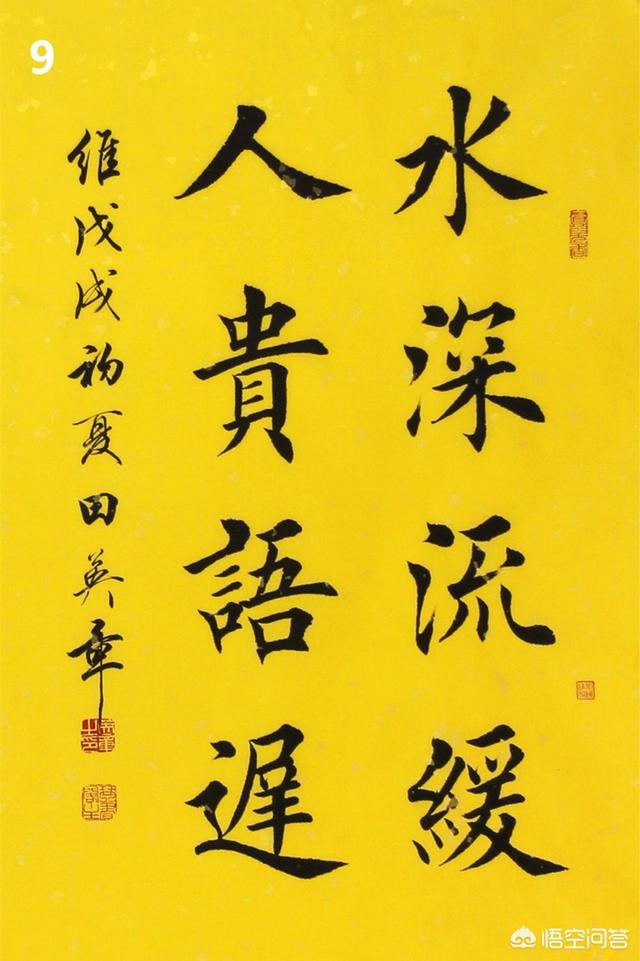 9
水深流緩
人貴語遲
維戊戌初夏田英章
悟空问答